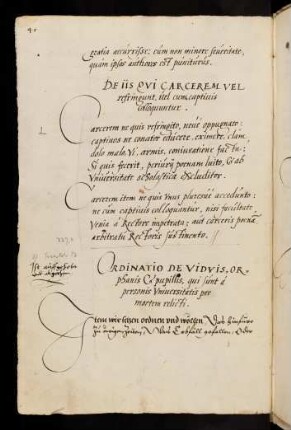 gratia accurrisse: cum non minore severitate,
quam ipsos authores esse puniturus.
DE IIS QVI CARCEREM VEL
refringunt, vel cum captivis
colloquuntur.
Carcerem ne quis refringito, neve oppugnato:
captivos ne conator educere, eximere, clam,
dolo malo, vi, armis, conniventiave facto:
Si quis fecerit, periurij poenam luito, & ab
Vniversitate scholastica excluditor.
Carcerem item ne quis vnus pluresve accedunto:
ne cum captivis colloquuntur, nisi facultate
venia à Rectore impetrata: aut carceris poenam
arbitratu Rectoris sustinento.
ORDINATIO DE VIDVIS, OR-
phanis & pupillis, qui sunt à
personis Vniversitatis per
mortem relicti.
Item wir setzen ordnen und wöllen, Das hinfüro
zu ewigen zeitten, Wes Erbfall gefallen, oder